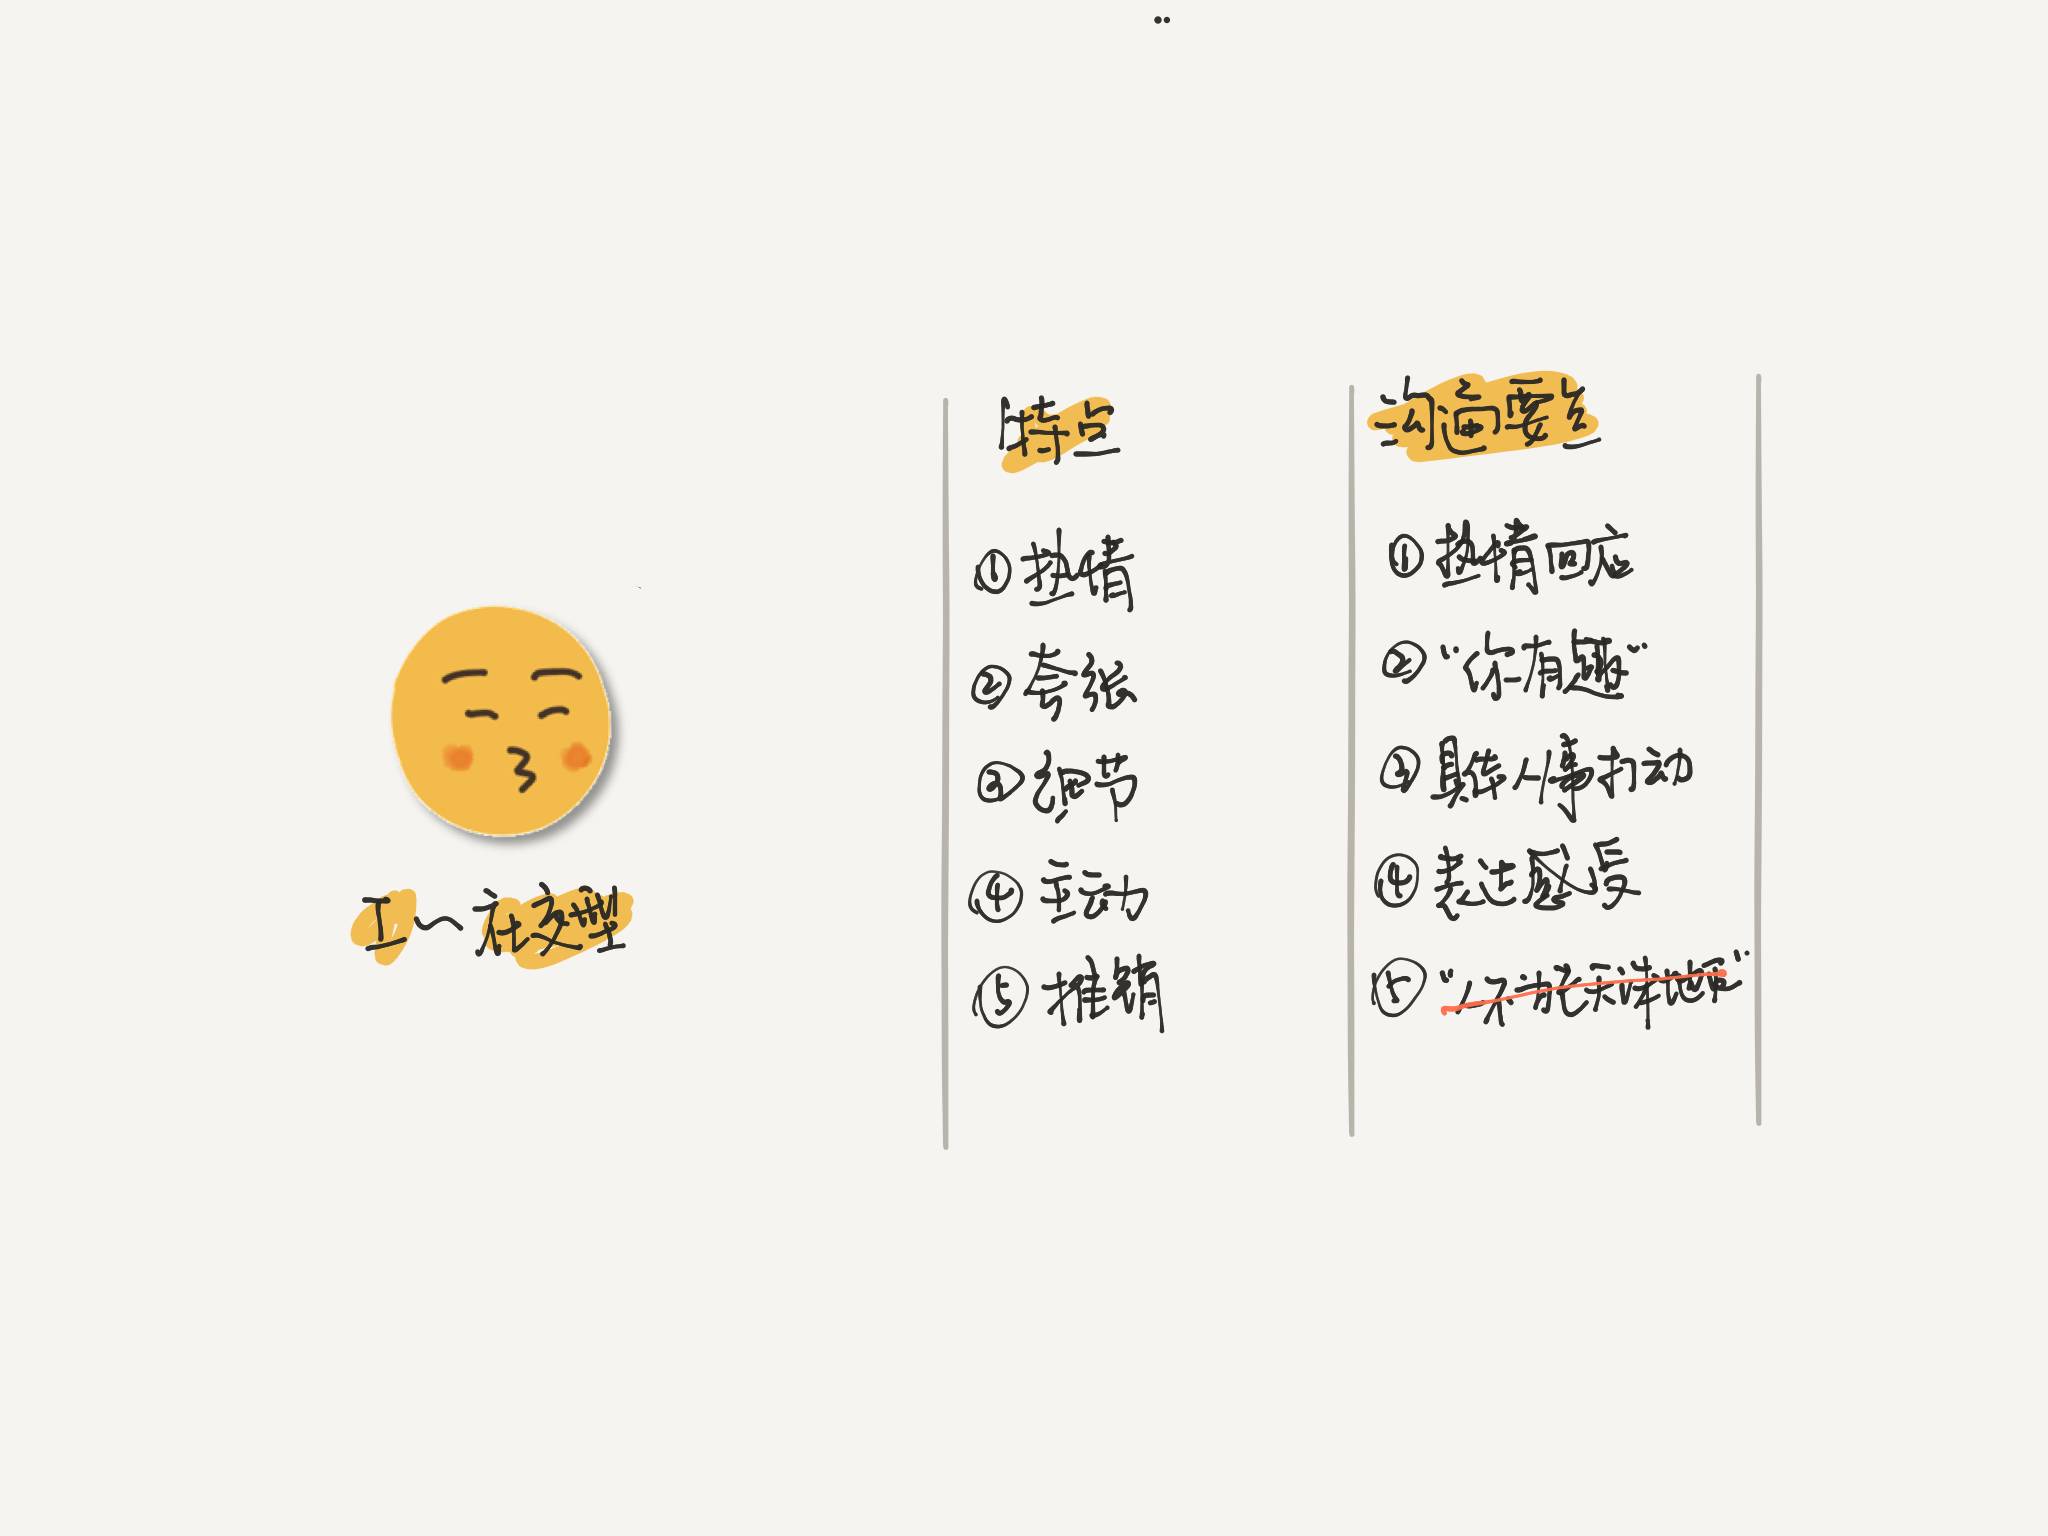 I～社交型
特点
①热情
②夸张
③细节
④主动
⑤推销
沟通要点
①热情回应
②“你有趣”
③具体人事打动
④表达感受
⑤“人不为己天诛地灭”